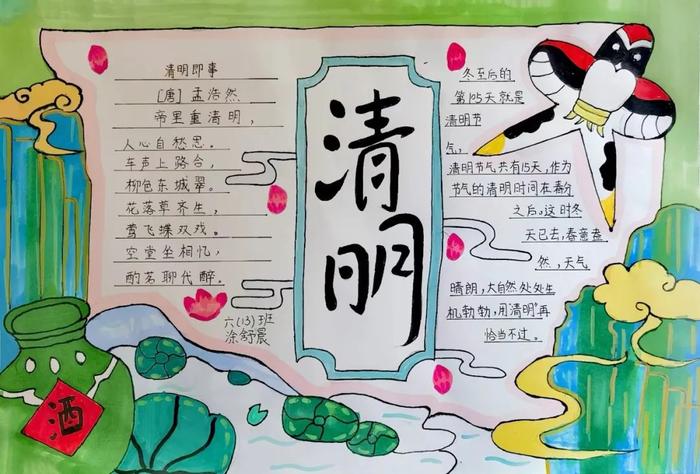 清明即事
[唐]孟浩然
帝里重清明，
人心自愁思。
车声上路合，
柳色东城翠。
花落草齐生，
莺飞蝶双戏。
空堂坐相忆，
酌茗聊代醉。
六(13)班
涂舒晨
清明
冬至后的
第105天就是
清明节
气，
清明节气共有15天，作为
节气的清明时间在春分
之后。这时冬
天已去，春意盎
然，天气
晴朗，大自然处处生
机勃勃，用“清明”再
恰当不过。
酒